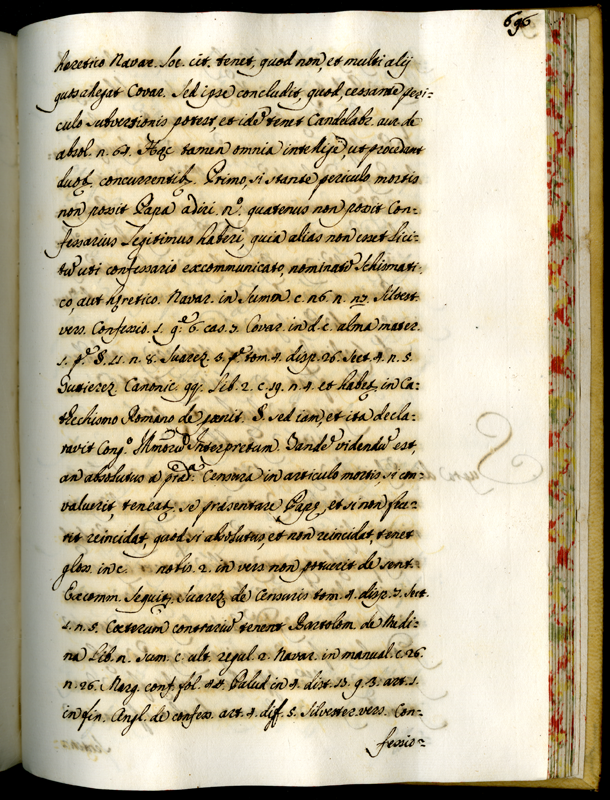 696
heretico Navar. loc. cit. tenet, quod non, et multi alij
quos allegat Covar. Sed ipse concludit, quod cessante peri-
culo subversionis potest, et idē tenet Candelabr. aur. de
absol. n. 64. Hęc tamen omnia intellige, ut procedant
duobꝫ concurrentibꝫ. Primo, si stante periculo mortis
non possit Papa adiri n.º quatenus non possit Con-
fessarius legitimus haberi, quia alias non esset lici-
tū uti confessario excommunicato, nominatō Schismati-
co, aut hęretico. Navar. in Summ. c. 26. n. 27. Silvest.
vers. Confessio. 1. q.º 6. cas. 3. Covar. in d. c. alma mater.
1. p.º §. 11. n. 8. Suarez. 3. p.º tom. 4. disp. 26. Sect. 4. n. 5.
Gutierez. Canonic. qq. lib. 2. c. 19. n. 4. et habetꝫ in Ca-
thechismo Romano de pœnit. §. sed iam, et ita decla-
ravit Cong.º Illmorū Interpretum. Dandō videndū est,
an absolutus a prædᵃ. Censura in articulo mortis, si con-
valuerit, teneatꝫ se præsentare Papę, et si non fece-
rit reincidat, quod si absolutus, et non reincidat, tenet
gloss. in c. nobis. 2. in vers. non potuerit de sent.
Excomm. Sequitꝫ Suarez de Censuris tom. 4. disp. 7. Sect.
1. n. 5. Cœterum contrariū tenent Bartolom. de Medi-
na lib. n. Sum. c. ult. regul. 2. Navar. in manual. c. 26.
n. 26. Marg. conf. fol. 84. Palud in 4. dist. 13. q. 3. art. 1.
in fin. Angl. de confess. art. 4. diff. 5. Silvester vers. Con-
fessio-